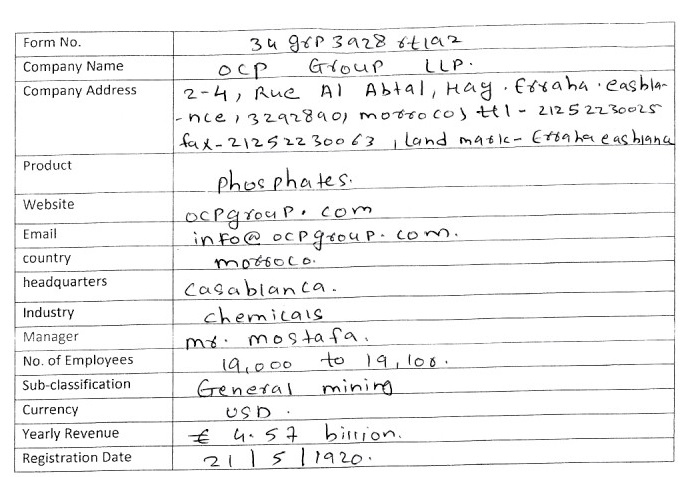 Form No. 34 grp 3928 rt192
Company Name OCP Group LLP.
Company Address 2-4, Rue Al Abtal, Hay. Erraha. easbla-
-nce, 3292890, morroco, tel - 21252230025
fax - 21252230063, land mark - Erraha easblana
Product phosphates.
Website ocpgroup.com
Email info@ocpgroup.com.
country morroco.
headquarters Casablanca.
Industry chemicals
Manager mr. mostafa.
No. of Employees 19,000 to 19,100.
Sub-classification General mining
Currency USD.
Yearly Revenue € 4.57 billion.
Registration Date 21/5/1920.